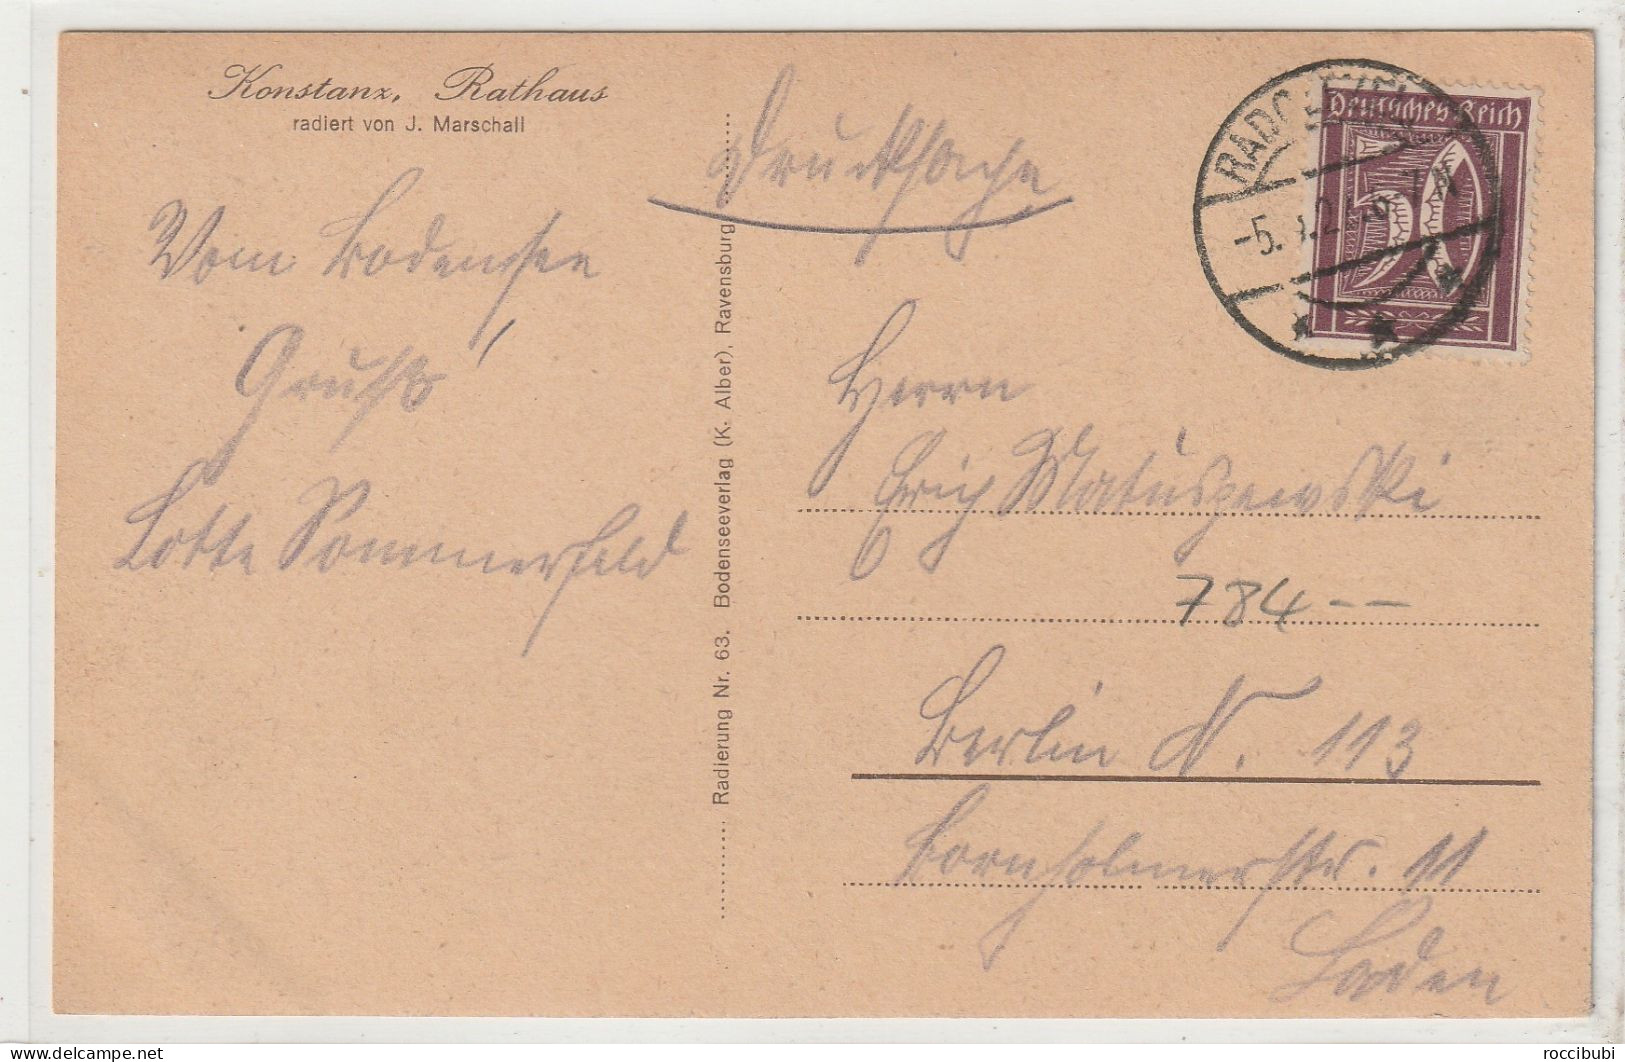 Konstanz, Rathaus
radiert von J. Marschall
Vom Bodensee
Gruß
Lotte Sommerfeld
Radierung Nr. 63. Bodenseeverlag (K. Alber), Ravensburg
Drucksache
Deutsches Reich
50
-5.
Herrn
Erich Matuszewski
784--
Berlin N. 113
Bornholmerstr. 11
Laden
delcampe.net
roccibubi